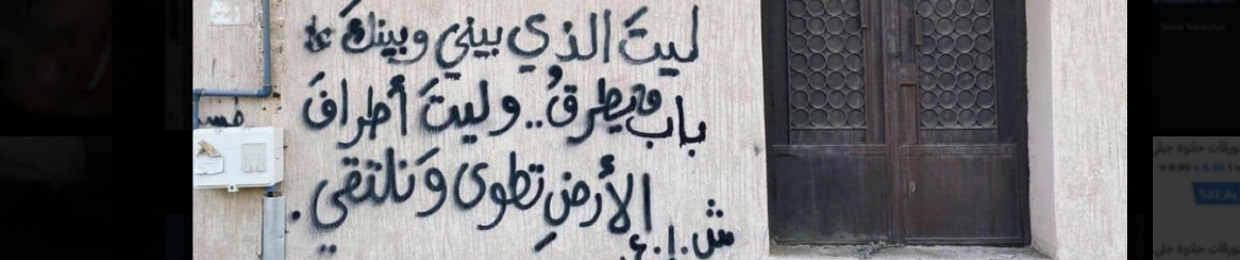 ليتَ الذي بيني وبينكَ
بابٌ فيطرقُ.. وليتَ أطرافَ
الأرضِ تطوى وَنلتقي.
ش.ا.ع.